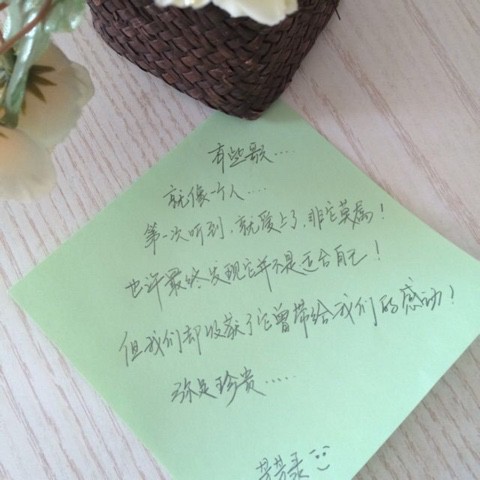 有些歌....
就像一个人....
第一次听到，就爱上了，非它莫属！
也许最终发现它并不是适合自己！
但我们却收获了它曾带给我们的感动！
弥足珍贵.....